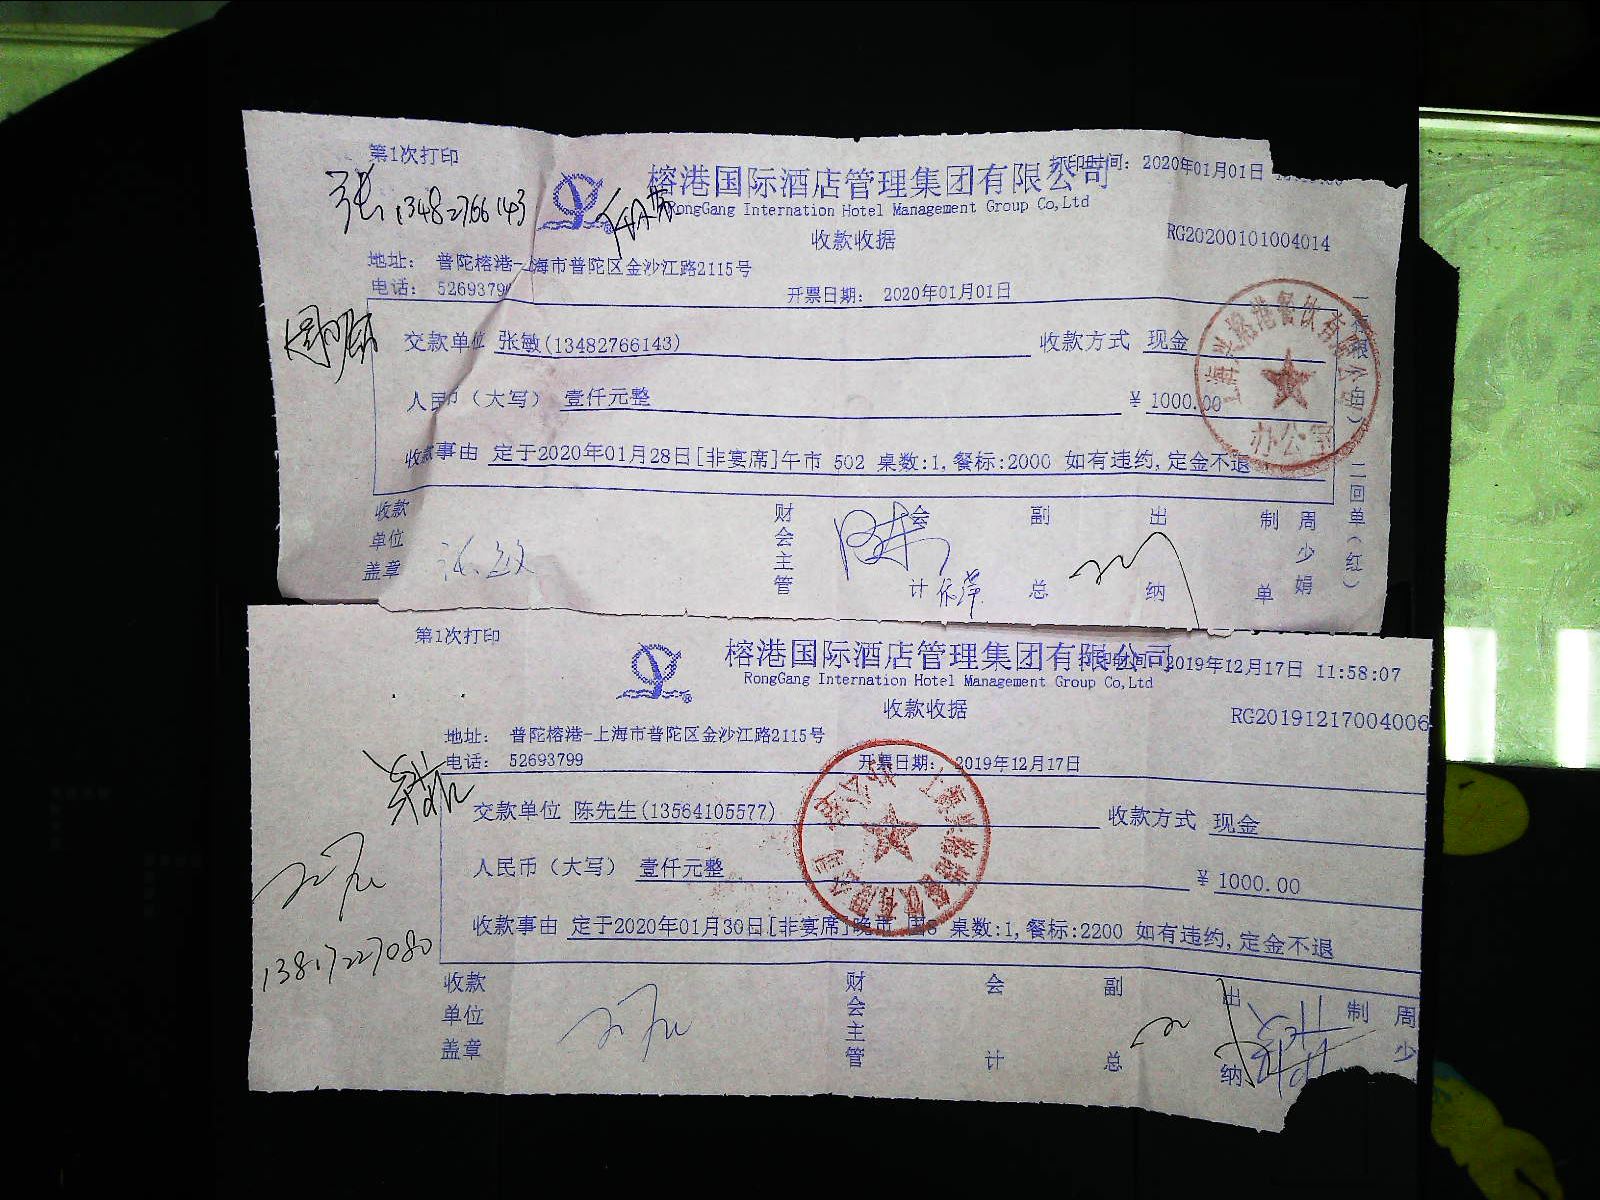 第1次打印
打印时间: 2020年01月01日
榕港国际酒店管理集团有限公司
RongGang Internation Hotel Management Group Co,Ltd
张 13482766143
收款收据
RG20200101004014
地址: 普陀榕港-上海市普陀区金沙江路2115号
电话: 5269379
开票日期: 2020年01月01日
交款单位 张敏(13482766143) 收款方式 现金
人民币（大写） 壹仟元整 ¥ 1000.00
收款事由 定于2020年01月28日[非宴席]午市 502 桌数:1,餐标:2000 如有违约,定金不退
办公室
二回单(红)
收款单位盖章 张敏 财会主管 会计 副总 出纳 制单 周少娟
第1次打印
打印时间: 2019年12月17日 11:58:07
榕港国际酒店管理集团有限公司
RongGang Internation Hotel Management Group Co,Ltd
收款收据
RG20191217004006
地址: 普陀榕港-上海市普陀区金沙江路2115号
电话: 52693799
开票日期: 2019年12月17日
交款单位 陈先生(13564105577) 收款方式 现金
人民币（大写） 壹仟元整 ¥ 1000.00
收款事由 定于2020年01月30日[非宴席]晚市 桌数:1,餐标:2200 如有违约,定金不退
13817227080
收款单位盖章 财会主管 会计 副总 出纳 制 周少